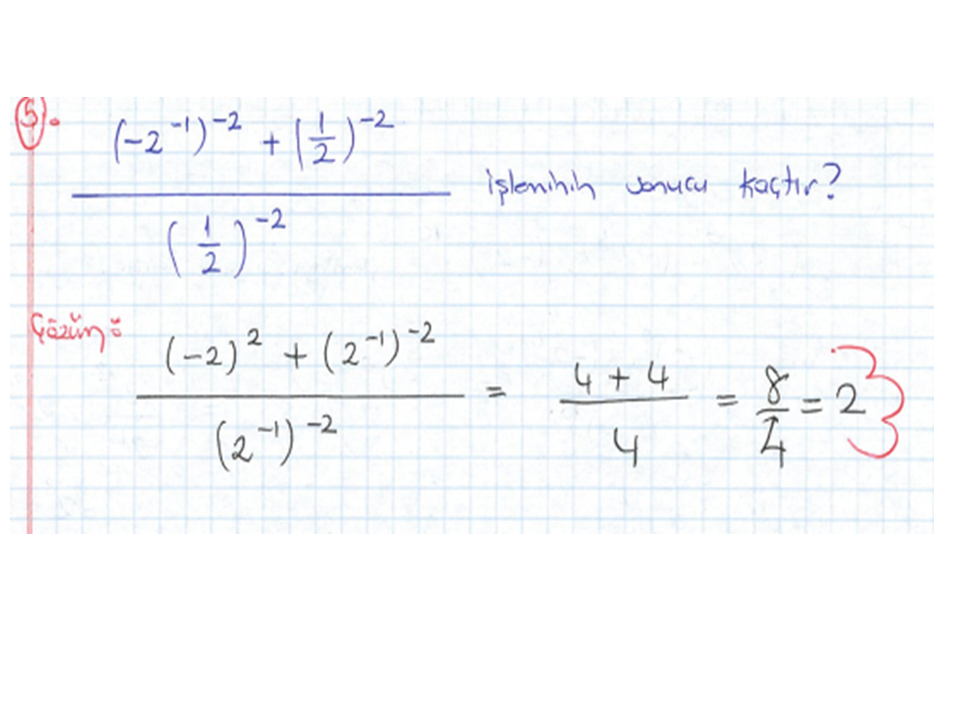 5.
(-2⁻¹)⁻² + (1/2)⁻² / (1/2)⁻² işleminin sonucu kaçtır?
Çözüm:
(-2)² + (2⁻¹)⁻² / (2⁻¹)⁻² = 4 + 4 / 4 = 8/4 = 2